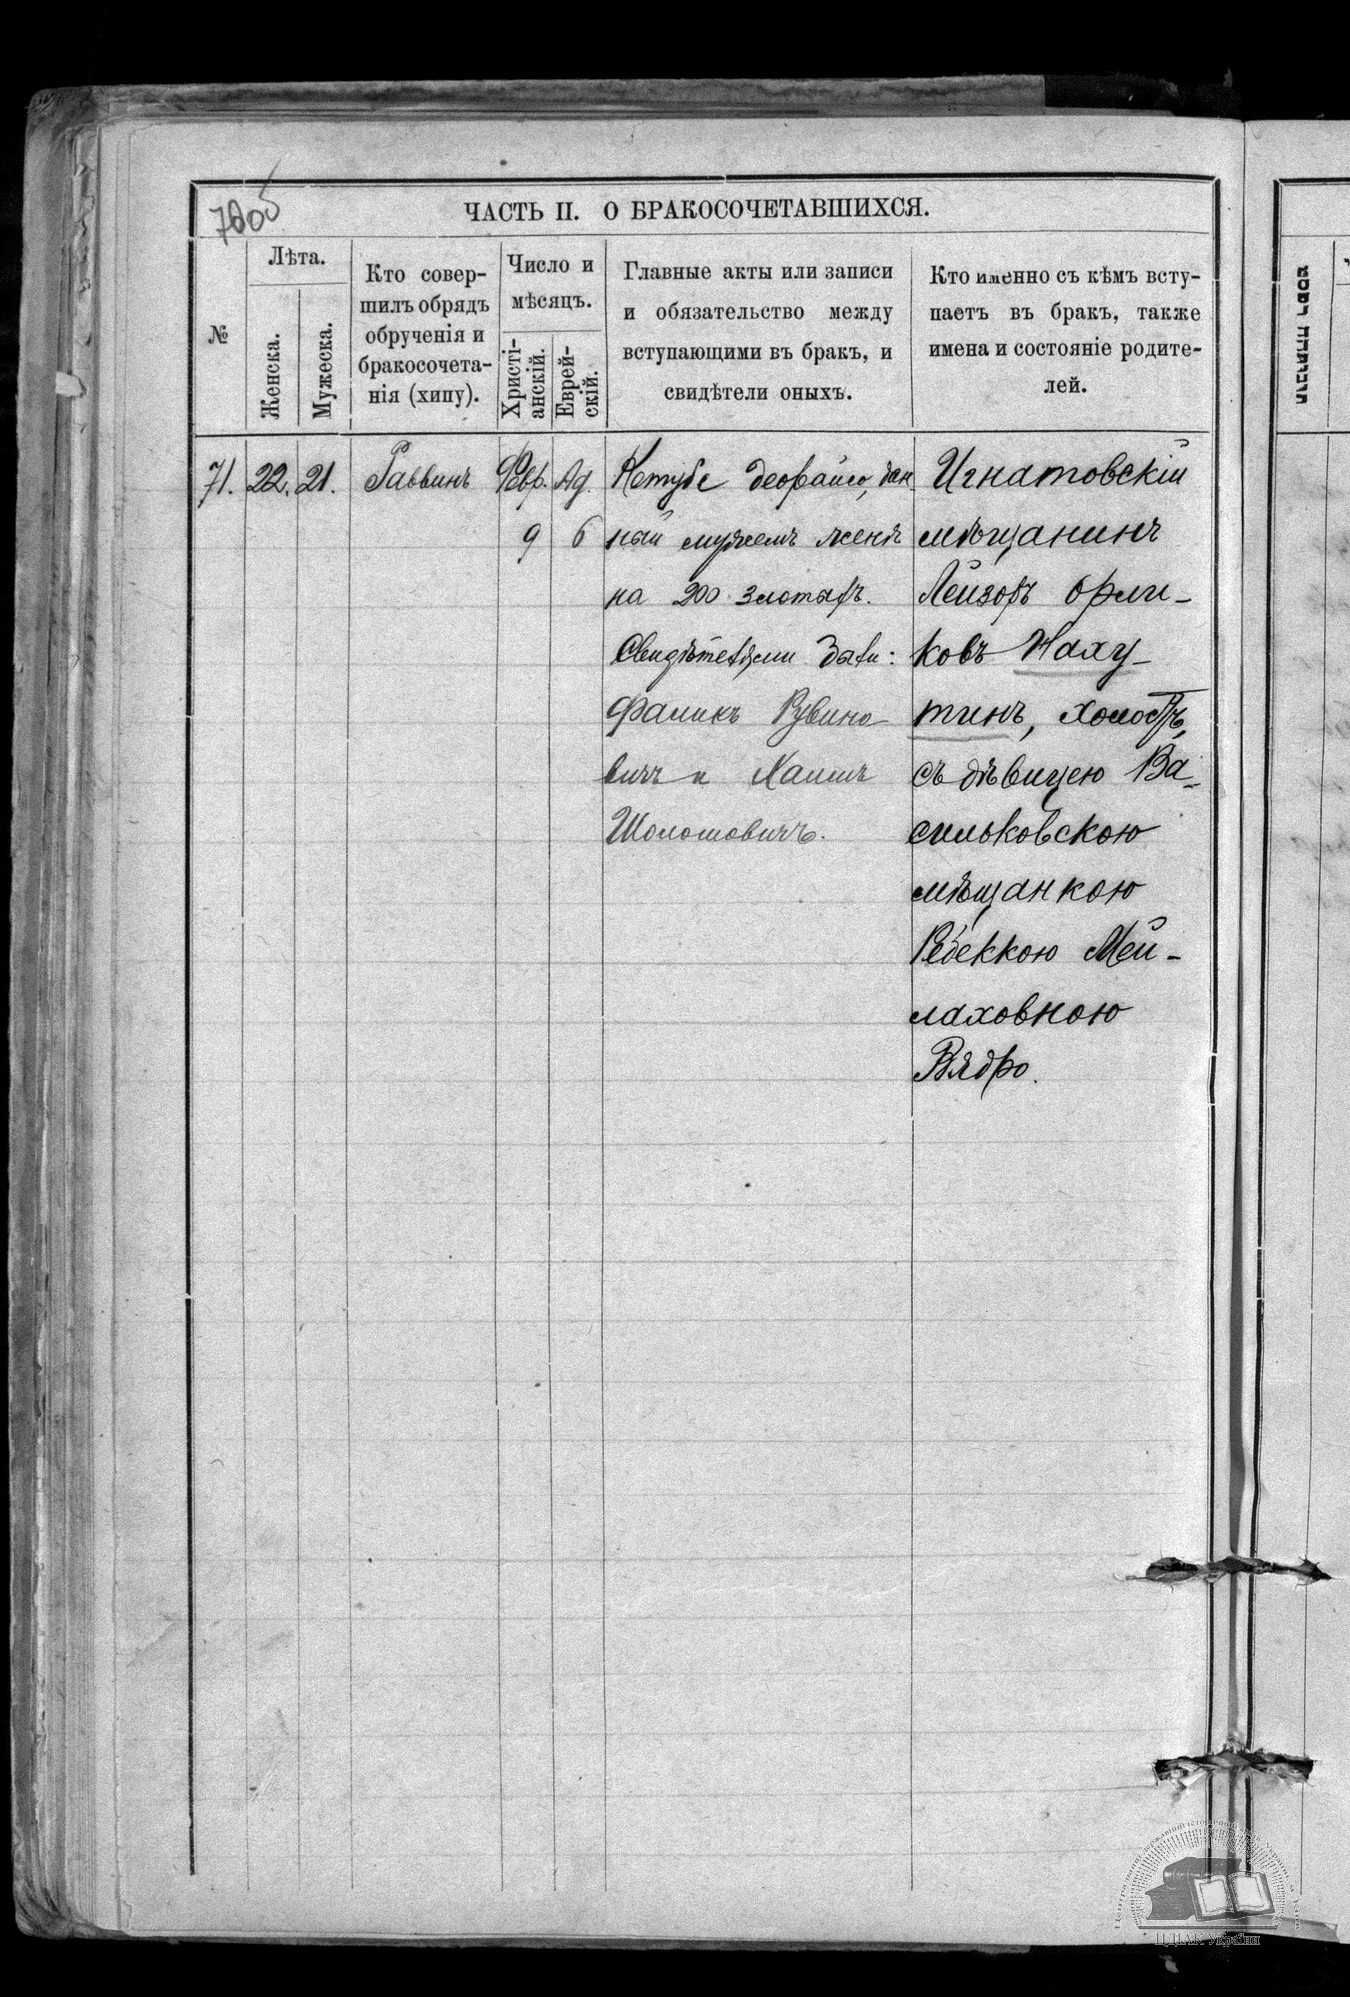 ЧАСТЬ II. О БРАКОСОЧЕТАВШИХСЯ.
№
Лѣта.
Женска.
Мужеска.
Кто совер-
шилъ обрядъ
обрученія и
бракосочета-
нія (хипу).
Число и
мѣсяцъ.
Христі-
анскій.
Еврей-
скій.
Главные акты или записи
и обязательство между
вступающими въ бракъ, и
свидѣтели оныхъ.
Кто именно съ кѣмъ всту-
паетъ въ бракъ, также
имена и состояніе родите-
лей.
71.
22.
21.
Раввинъ
Февр.
9
Ад.
6
Кетубе деорайсо, дан-
ный мужемъ женѣ
на 200 злотыхъ.
Свидѣтелями были:
Фаликъ Рувино-
вичъ и Хаимъ
Шоломовичъ.
Игнатовскій
мѣщанинъ
Лейзоръ Орли-
ковъ Наху-
тинъ, холостъ,
съ дѣвицею Ва-
сильковскою
мѣщанкою
Ребеккою Мей-
лаховною
Вядро.
ЦДІАК України